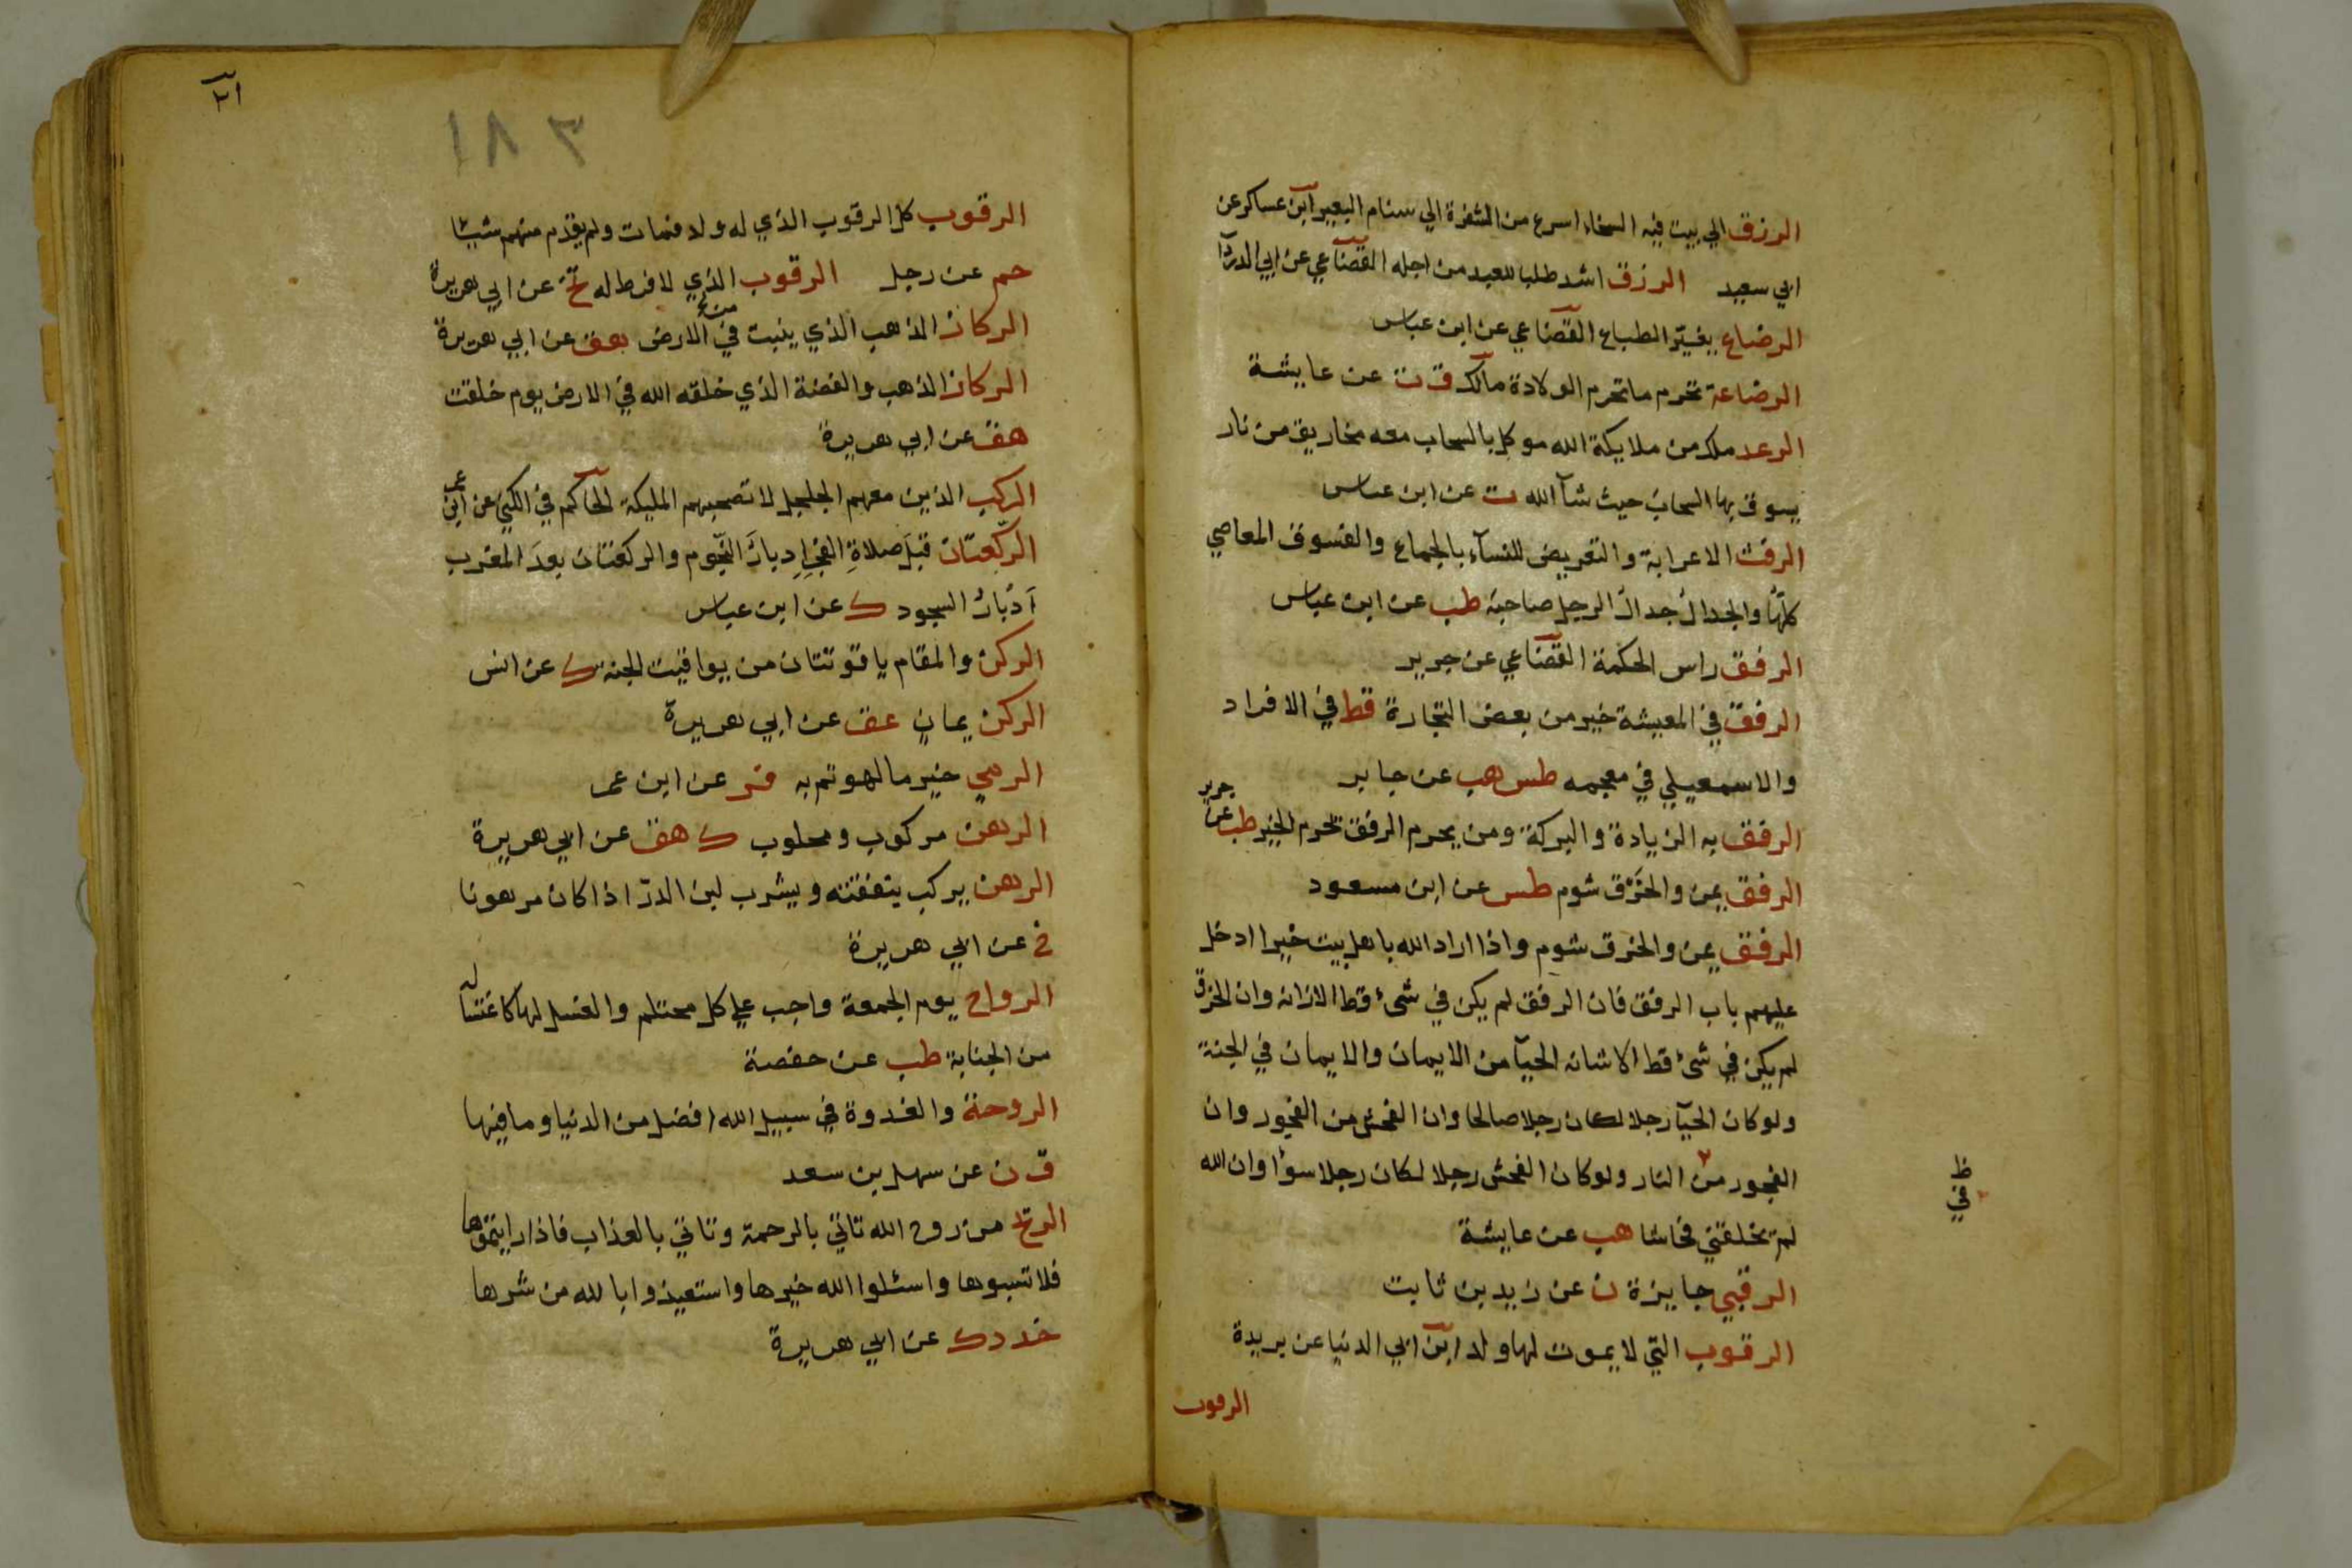 الرزق الي بيت فيه السخاء اسرع من الشفرة الي سنام البعير ابن عساكر عن
ابي سعيد الرزق اشد طلبا للعبد من اجله القضاعي عن ابي الدردا
الرضاع يغير الطباع القضاعي عن ابن عباس
الرضاعة تحرم ما تحرم الولادة مالك ق ت عن عايشة
الرعد ملك من ملايكة الله موكل بالسحاب معه مخاريق من نار
يسوق بها السحاب حيث شآ الله ت عن ابن عباس
الرفث الاعرابة والتعريض للنسآء بالجماع والفسوق المعاصي
كلها والجدال جدال الرجل صاحبه طب عن ابن عباس
الرفق راس الحكمة القضاعي عن جرير
الرفق في المعيشة خير من بعض التجارة قط في الافراد
والاسمعيلي في معجمه طس هب عن جابر
الرفق به الزيادة والبركة ومن يحرم الرفق يحرم الخير طب عن جرير
الرفق يمن والخرق شوم طس عن ابن مسعود
الرفق يمن والخرق شوم واذا اراد الله باهل بيت خيرا ادخل
عليهم باب الرفق فان الرفق لم يكن في شئ قط الا زانه وان الخرق
لم يكن في شئ قط الا شانه الحيآ من الايمان والايمان في الجنة
ولو كان الحيآ رجلا لكان رجلا صالحا وان الفحش من الفجور وان
الفجور من النار ولو كان الفحش رجلا لكان رجلا سوءا وان الله
ظ
في
لم يخلقني فحاشا هب عن عايشة
الرقبي جايزة ن عن زيد بن ثابت
الرقوب التي لا يموت لها ولد ابن ابي الدنيا عن بريدة
الرقوب
١٨٣
الرقوب كل الرقوب الذي له ولد فمات ولم يقدم منهم شيئا
حم عن رجل الرقوب الذي لا فرط له تخ عن ابي هريرة
الركاز الذهب الذي ينبت في الارض هق عن ابي هريرة
الركاز الذهب والفضة الذي خلقه الله في الارض يوم خلقت
هق عن ابي هريرة
الركب الذين معهم الجلجل لا تصحبهم المليكة الحاكم في الكني عن ابن عمر
الركعتان قبل صلاة الفجر ادبار النجوم والركعتان بعد المغرب
أدبار السجود ك عن ابن عباس
الركن والمقام ياقوتتان من يواقيت الجنة ك عن انس
الركن يمان عق عن ابي هريرة
الرمي خير ما لهوتم به فر عن ابن عمر
الرهن مركوب ومحلوب ك هق عن ابي هريرة
الرهن يركب بنفقته ويشرب لبن الدر اذا كان مرهونا
خ عن ابي هريرة
الرواح يوم الجمعة واجب علي كل محتلم والغسل لها كاغتساله
من الجنابة طب عن حفصة
الروحة والغدوة في سبيل الله افضل من الدنيا وما فيها
ق ن عن سهل بن سعد
الريح من روح الله تاتي بالرحمة وتاتي بالعذاب فاذا رايتموها
فلا تسبوها واسئلوا الله خيرها واستعيذوا بالله من شرها
خد د ك عن ابي هريرة